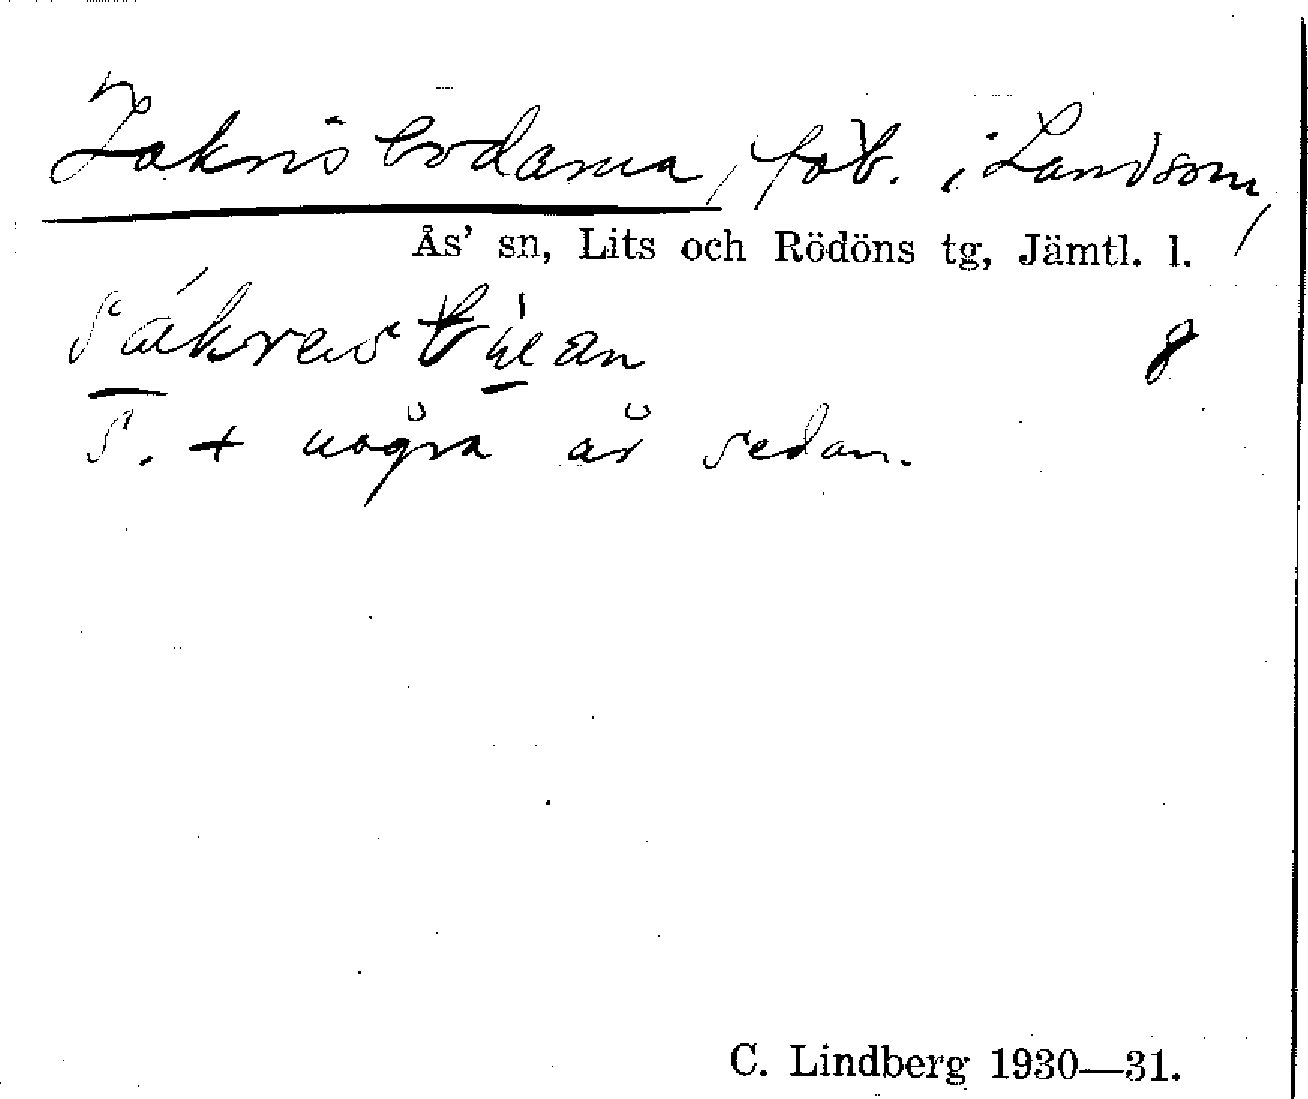 Zakrisbodarna, fäb. i Landsom,
Ås' sn, Lits och Rödöns tg, Jämtl. l.
8
S. + några år sedan.
C. Lindberg 1930—31.